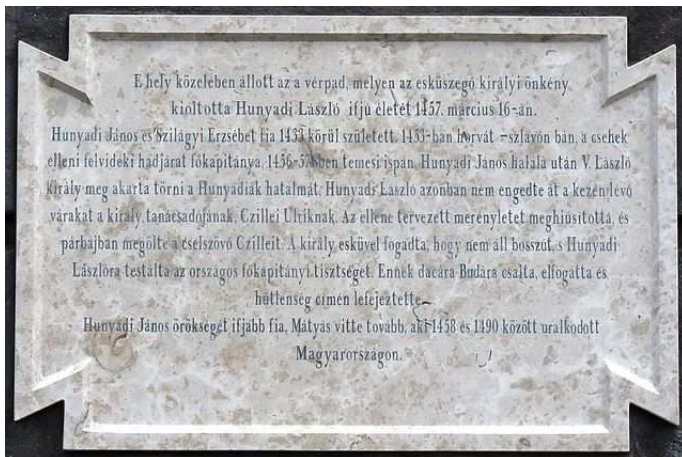 E hely közelében állott az a vérpad, melyen az esküszegő királyi önkény
kioltotta Hunyadi László ifjú életét 1457. március 16-án.
Hunyadi János és Szilágyi Erzsébet fia 1433 körül született. 1453-ban horvát-szlavón bán, a csehek
elleni felvidéki hadjárat főkapitánya, 1456-57-ben temesi ispán. Hunyadi János halála után V. László
király meg akarta törni a Hunyadiak hatalmát. Hunyadi László azonban nem engedte át a kezén lévő
várakat a király tanácsadójának, Czillei Ulriknak. Az ellene tervezett merényletet meghiúsította, és
párbajban megölte a cselszövő Czilleit. A király esküvel fogadta, hogy nem áll bosszút, s Hunyadi
Lászlóra testálta az országos főkapitányi tisztséget. Ennek dacára Budára csalta, elfogatta és
hűtlenség címén lefejeztette.
Hunyadi János örökségét ifjabb fia, Mátyás vitte tovább, aki 1458 és 1490 között uralkodott
Magyarországon.